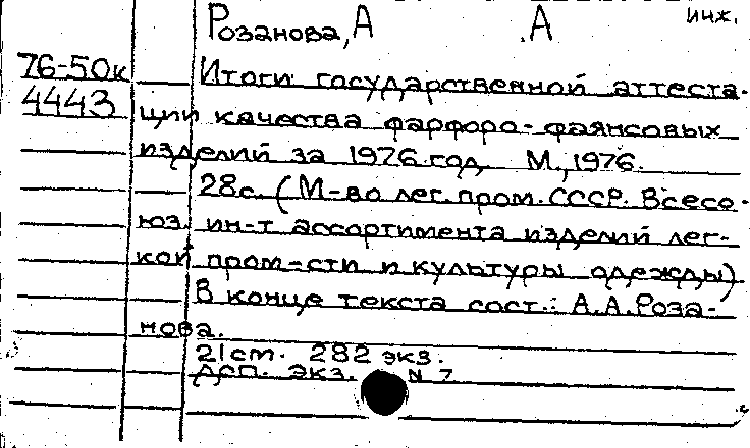 Розанова, А. А инж.
76-50к Итоги государственной аттеста-
4443 ции качества фарфоро-фаянсовых
изделий за 1976 год М., 1976.
28с. (М-во лег. пром. СССР. Всесо-
юз. ин-т ассортимента изделий лег-
кой пром-сти и культуры одежды)
В конце текста сост.: А.А. Роза-
нова.
21 см. 282 экз.
Арп. экз. N 7